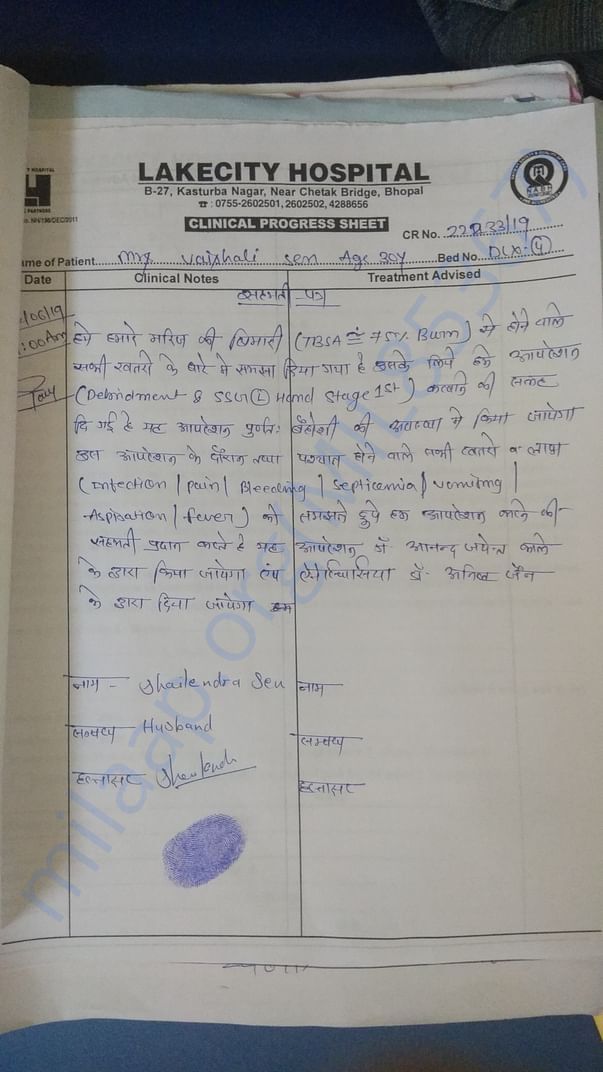 LAKECITY HOSPITAL
B-27, Kasturba Nagar, Near Chetak Bridge, Bhopal
☎ : 0755-2602501, 2602502, 4288656
CLINICAL PROGRESS SHEET
CR No.
me of Patient Mrs vaishali sen Age 30y Bed No. DLX-④
Date Clinical Notes Treatment Advised
सहमती पत्र
/06/19 हमे हमारे मरिज की बिमारी (TBSA ≅ 75% Burn) से होने वाले
:00Am सभी खतरो के बारे मे समझा दिया गया है उसके लिये हमे आपरेशन
(Debridment & SSG Ⓛ Hand Stage 1st) करवाने की सलाह
दि गई है यह आपरेशन पुर्णतः बेहोशी की अवस्था मे किया जायेगा
इस आपरेशन के दौरान तथा पश्चात होने वाले सभी खतरो व लाभ
(Infection | pain | Bleeding | Septicemia | vomiting |
Aspiration | fever) को समझते हुये हम आपरेशन करने की
सहमती प्रदान करते है यह आपरेशन डॉ. आनन्द जयन्त काले
के द्वारा किया जायेगा एंव ऐनेस्थिसिया डॉ. अनिल जैन
के द्वारा दिया जायेगा
नाम - Shailendra Sen नाम
सम्बन्ध Husband सम्बन्ध
हस्ताक्षर हस्ताक्षर
milaap.org